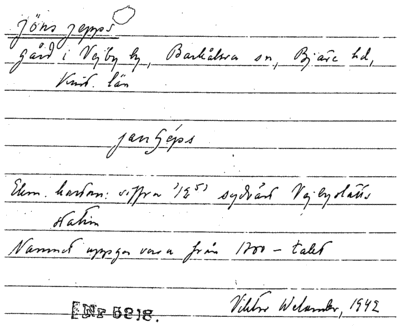 Jöns Jepps
gård i Vejby by, Barkåkra sn, Bjäre hd,
Krist. län
jɑns jéps
Ekon. kartan: siffra "12⁵" sydväst Vejbyslätts
station
Namnet uppges vara från 1700-talet
[Nr 5218.
Viktor Welander, 1942